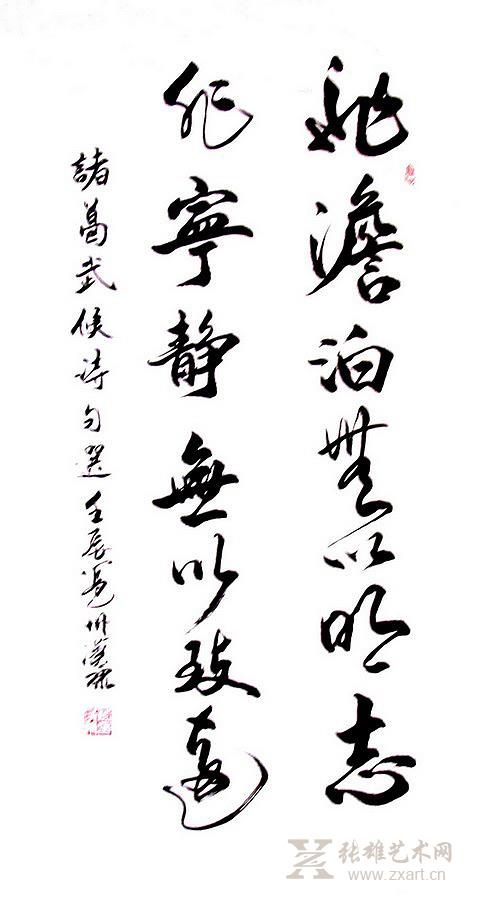 非澹泊無以明志
非寧静無以致遠
諸葛武侯诗句選壬辰
张雄艺术网
www.zxart.cn